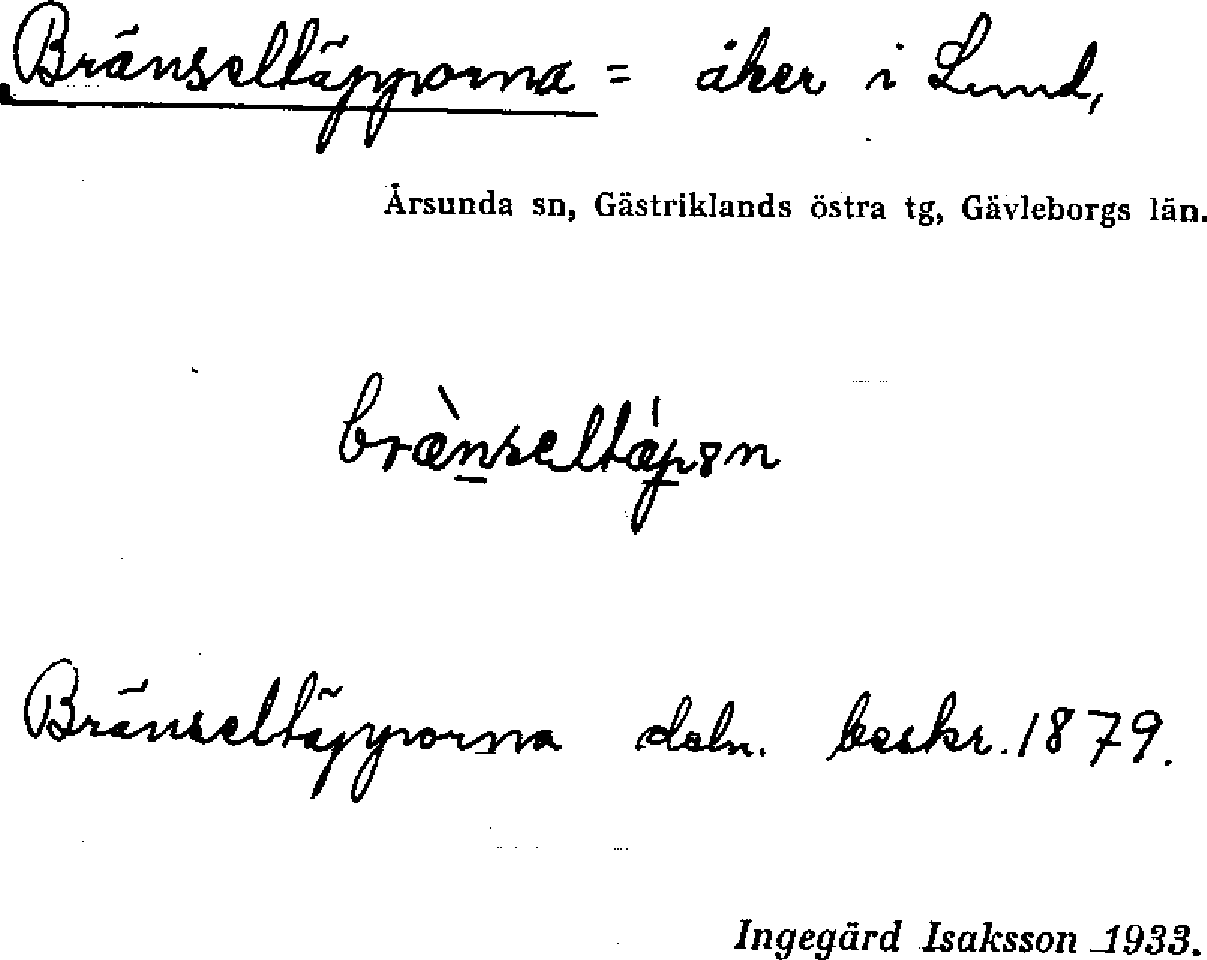 Bränseltäpporna = åker i Lund,
Årsunda sn, Gästriklands östra tg, Gävleborgs län.
Bränseltäpporna deln. beskr. 1879.
Ingegärd Isaksson 1933.